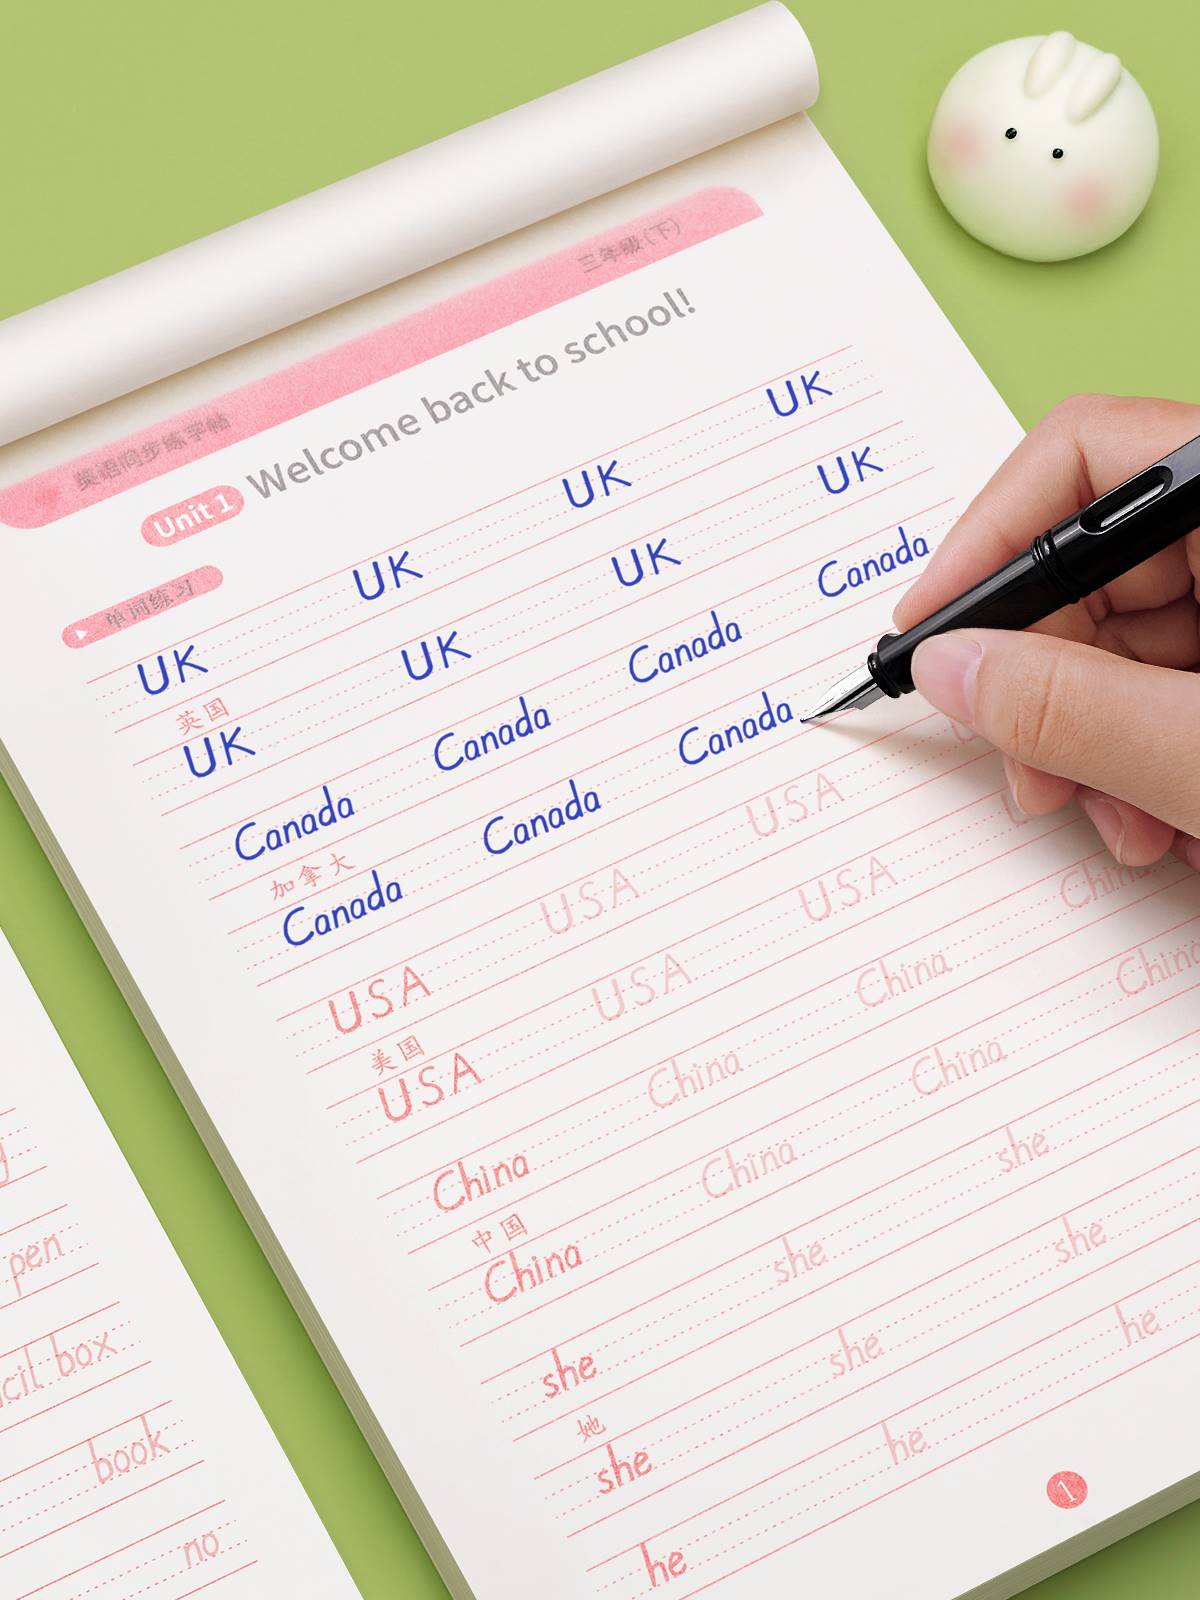 英语同步练字帖 三年级(下)
Unit 1 Welcome back to school!
单词练习
UK UK UK UK
英国
UK UK UK UK
Canada Canada Canada Canada
加拿大
Canada Canada Canada
USA USA USA
美国
USA USA USA
China China China Chin
中国
China China China China
she she she
她
she she she
he he he
1
pen
cil box
book
no